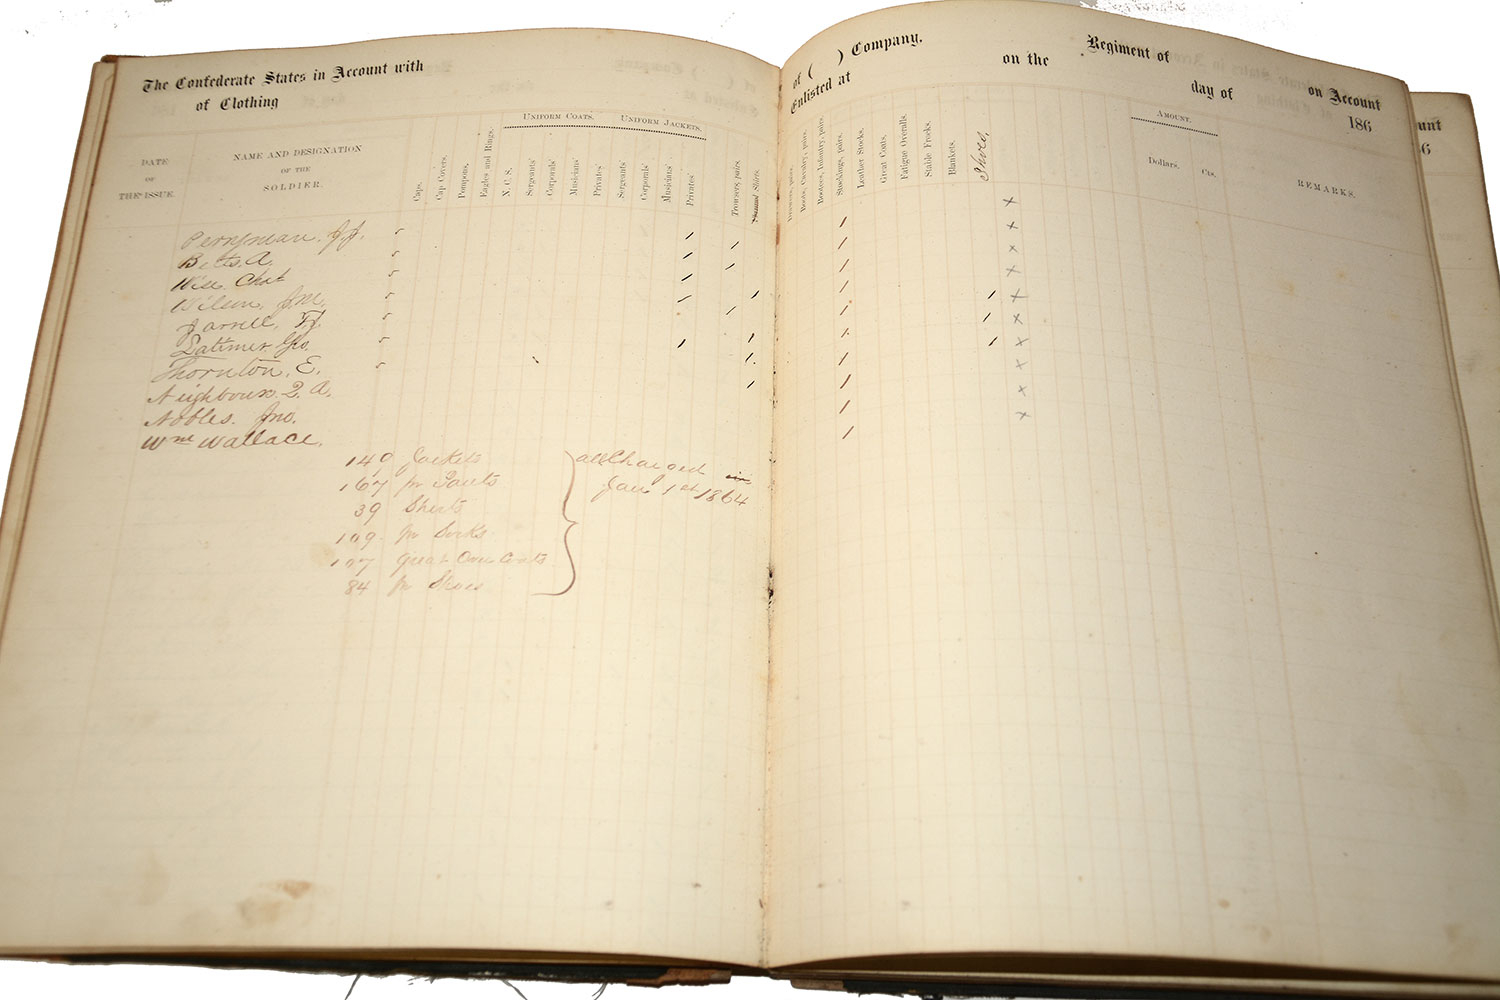 The Confederate States in Account with
of Clothing
DATE
OF
THE ISSUE.
NAME AND DESIGNATION
OF THE
SOLDIER.
Caps.
Cap Covers.
Pompons.
Eagles and Rings.
UNIFORM COATS.
N. C. S.
Sergeants'
Corporals'
Musicians'
Privates'
UNIFORM JACKETS.
Sergeants'
Corporals'
Musicians'
Privates'
Trowsers, pairs.
Perryman. J. J.
Betts. A.
Wise Chat
Wilson, J M.
Jarrell, T J.
Latimer Geo.
Thornton. E.
Neighbours. Q. A.
Nobles. Jno.
Wm Wallace.
140 Jackets
167 pr Pants
39 Shirts
109 pr Socks
107 Great Over Coats
84 pr Shoes
all Charged
Jan 1st 1864
of ( ) Company.
Enlisted at
on the
Regiment of
day of
on Account
186
Drawers, pairs.
Boots, Cavalry, pairs.
Bootees, Infantry, pairs.
Stockings, pairs.
Leather Stocks.
Great Coats.
Fatigue Overalls.
Stable Frocks.
Blankets.
Shoes.
AMOUNT.
Dollars.
Cts.
REMARKS.
unt
6